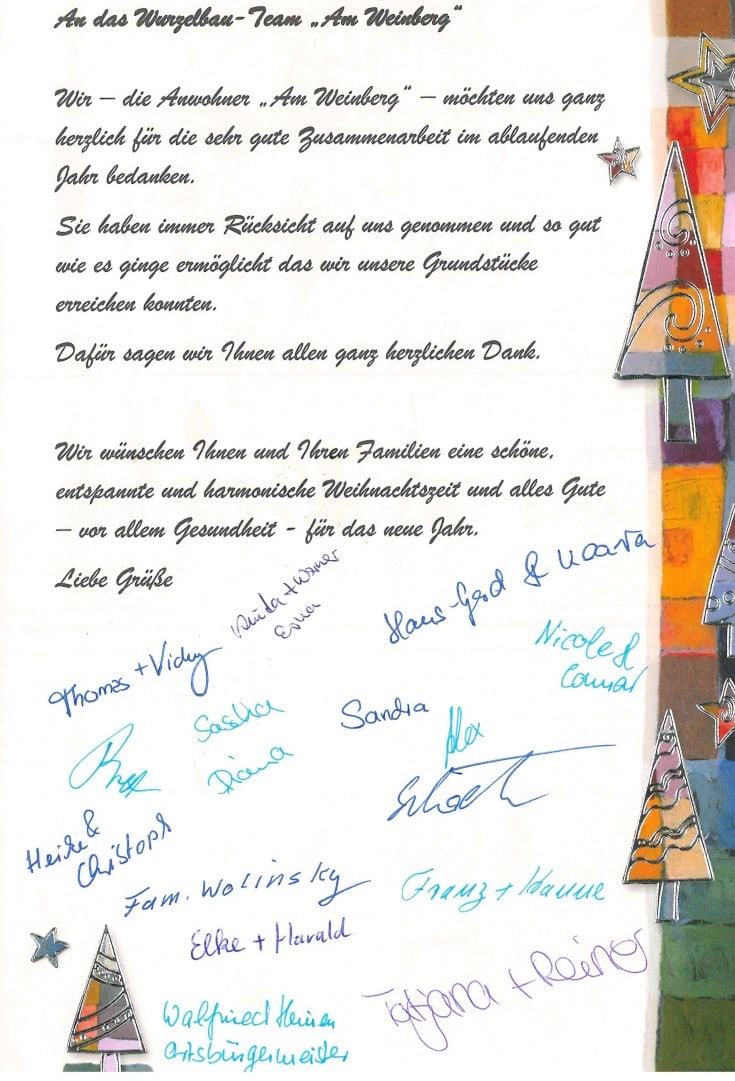 An das Wurzelbau-Team „Am Weinberg“
Wir – die Anwohner „Am Weinberg“ – möchten uns ganz
herzlich für die sehr gute Zusammenarbeit im ablaufenden
Jahr bedanken.
Sie haben immer Rücksicht auf uns genommen und so gut
wie es ginge ermöglicht das wir unsere Grundstücke
erreichen konnten.
Dafür sagen wir Ihnen allen ganz herzlichen Dank.
Wir wünschen Ihnen und Ihren Familien eine schöne,
entspannte und harmonische Weihnachtszeit und alles Gute
– vor allem Gesundheit - für das neue Jahr.
Liebe Grüße
Hans-Gerd &
Nicole &
Thomas + Vicky
Sascha
Sandra
Alex
Diana
Heike &
Christoph
Fam. Wolinsky
Franz + Hanne
Elke + Harald
Tatjana + Reiner
Walfried Heinen
Ortsbürgermeister